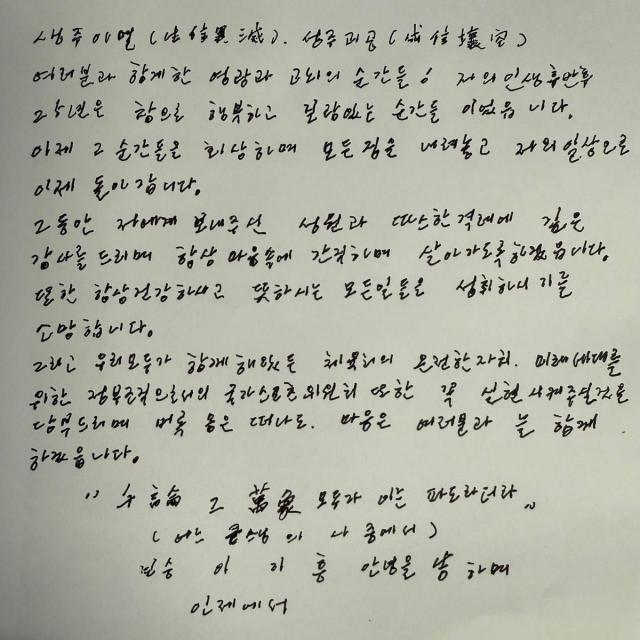 생주이멸(生住異滅). 성주괴공(成住壞空)
여러분과 함께한 영광과 고뇌의 순간들! 저의 인생후반후
25년은 참으로 행복하고 보람있는 순간들 이었읍니다.
이제 그 순간들을 회상하며 모든짐을 내려놓고 저의일상으로
이제 돌아갑니다.
그동안 저에게 보내주신 성원과 따스한격려에 깊은
감사를 드리며 항상 마음속에 간직하며 살아가도록하겠읍니다.
또한 항상건강하시고 뜻하시는 모든일들을 성취하시기를
소망합니다.
그리고 우리모두가 함께해왔든 체육회의 온전한자치. 미래세대를
위한 정부조직으로서의 국가스포츠위원회 또한 꼭 실현시켜주실것을
당부드리며 비록 몸은 떠나도. 마음은 여러분과 늘 함께
하겠읍니다.
" 勿論 그 萬象 모두가 이는 파도라더라 "
(어느 큰스님의 나 중에서)
이 기 흥 안녕을 하며
인제에서